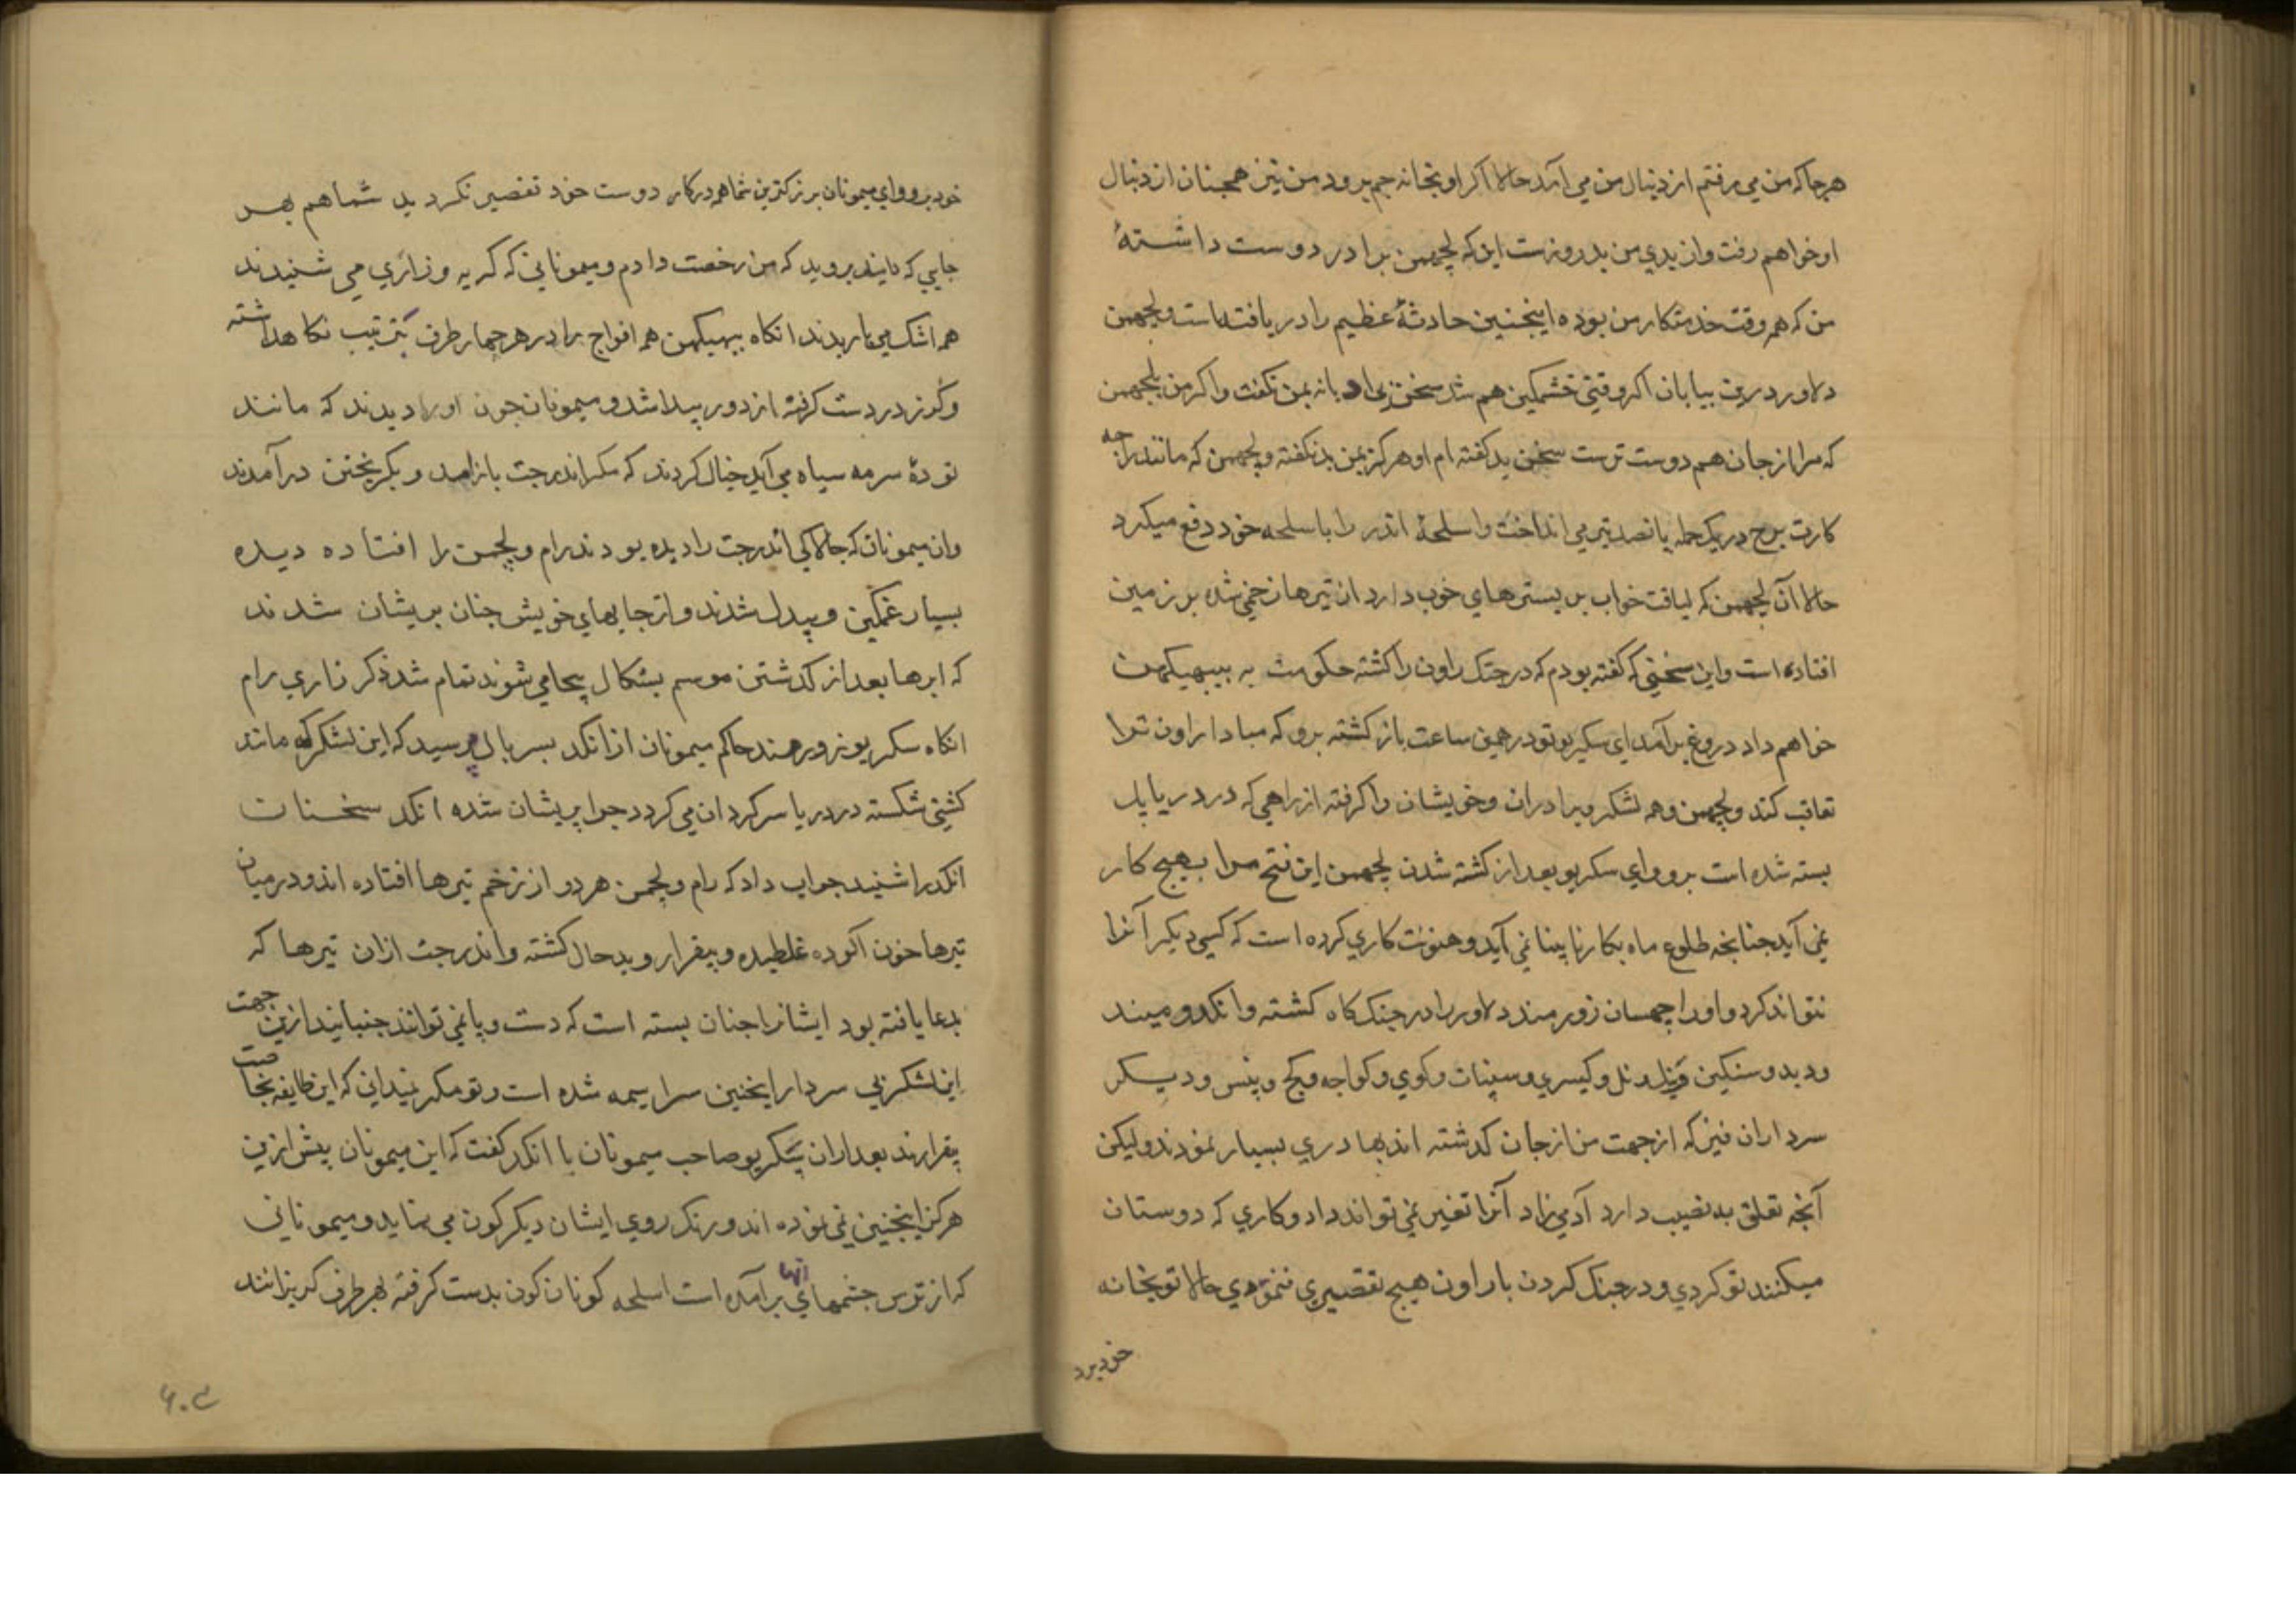 هرجا که من می رفتم از دنبال من می آمد حالا اگر او بخانه جم برود من نیز همچنان از دنبال
او خواهم رفت و از بدی من بد روزست این که لچهمن برادر دوست داشتهٔ
من که همه وقت خدمتکار من بوده اینچنین حادثهٔ عظیم را دریافته است ولچهمن
دلاور درین بیابان اگر وقتی خشمگین هم شد سخن بی ادبانه بمن نگفت و اگر من بلچهمن
که مرا از جان هم دوست ترست سخن بد گفته ام او هرگز بمن بد نگفته ولچهمن که مانند راجه
کارت برج در یک حمله پانصد تیر می انداخت و اسلحهٔ اندر را با سلحه خود دفع میکرد
حالا آن لچهمن که لیاقت خواب بر بسترهای خوب دارد از تیرها زخمی شده بر زمین
افتاده است و این سخنی که گفته بودم که در جنگ راون را کشته حکومت به ببهیکهن
خواهم داد دروغ برآمد ای سکریو تو در همین ساعت باز گشته برو که مبادا راون ترا
تعاقب کند ولچهمن و همه لشکر و برادران و خویشان را گرفته از راهی که در دریا پل
بسته شده است برو و ای سکریو بعد از کشته شدن لچهمن این فتح مرا بهیچ کار
نمی آید چنانچه طلوع ماه بکار نابینا نمی آید و هنونت کاری کرده است که کسی دیگر آنرا
نتواند کرد و او راچهسان زورمند دلاور را در جنگ گاه کشته و انگد و میند
ودبد و سنکین ونل و کیسری و سنپات و کوی و کواچه و کج و پنس و دیگر
سرداران نیز که از جهت من از جان گذشته اند بهادری بسیار نمودند ولیکن
آنچه تعلق به نصیب دارد آدمی زاد آنرا تغیر نمی تواند داد و کاری که دوستان
میکنند تو کردی و در جنگ کردن با راون هیچ تقصیری ننمودی حالا تو بخانه
خود برو
خود برو و ای میمونان بزرگترین شما همه در کار دوست خود تقصیر نکردید شما هم بهر
جایی که دانید بروید که من رخصت دادم و میمونانی که گریه و زاری می شنیدند
همه اشک می باریدند انگاه ببهیکهن همه افواج را در هر چهار طرف بترتیب نگاهداشته
و گرز در دست گرفته از دور پیدا شد و میمونان چون او را دیدند که مانند
تودهٔ سرمه سیاه می آید خیال کردند که مگر اندرجت باز آمد و بگریختن درآمدند
و آن میمونان که چالاکی اندرجت را دیده بودند رام و لچمن را افتاده دیده
بسیار غمگین و بیدل شدند و از جایهای خویش چنان پریشان شدند
که ابرها بعد از گذشتن موسم بشکال یجا می شوند تمام شد ذکر زاری رام
انگاه سکریو زورمند حاکم میمونان از انگد پسر بال پرسید که این لشکر که مانند
کشتی شکسته در دریا سرگردان می گردد چرا پریشان شده انگد سخنان
انگد را شنید جواب داد که رام و لچمن هر دو از زخم تیرها افتاده اند و در میان
تیرها خون آلوده غلطیده و بیقرار و بد حال گشته و اندرجت ازان تیرها که
بدعا یافته بود ایشانرا چنان بسته است که دست و پا نمی توانند جنبانید ازین جهت
این لشکر بی سردار اینچنین سراسیمه شده است و تو مگر نمیدانی که این طایفه بخاصیت
بیقرارند بعد ازان سکریو صاحب میمونان با انگد گفت که این میمونان پیش ازین
هرگز اینچنین نمی نموده اند و رنگ روی ایشان دیگرگون می نماید و میمونانی
که از ترس چشمهای آنها برآمده است اسلحه گوناگون بدست گرفته بهر طرف گریزانند